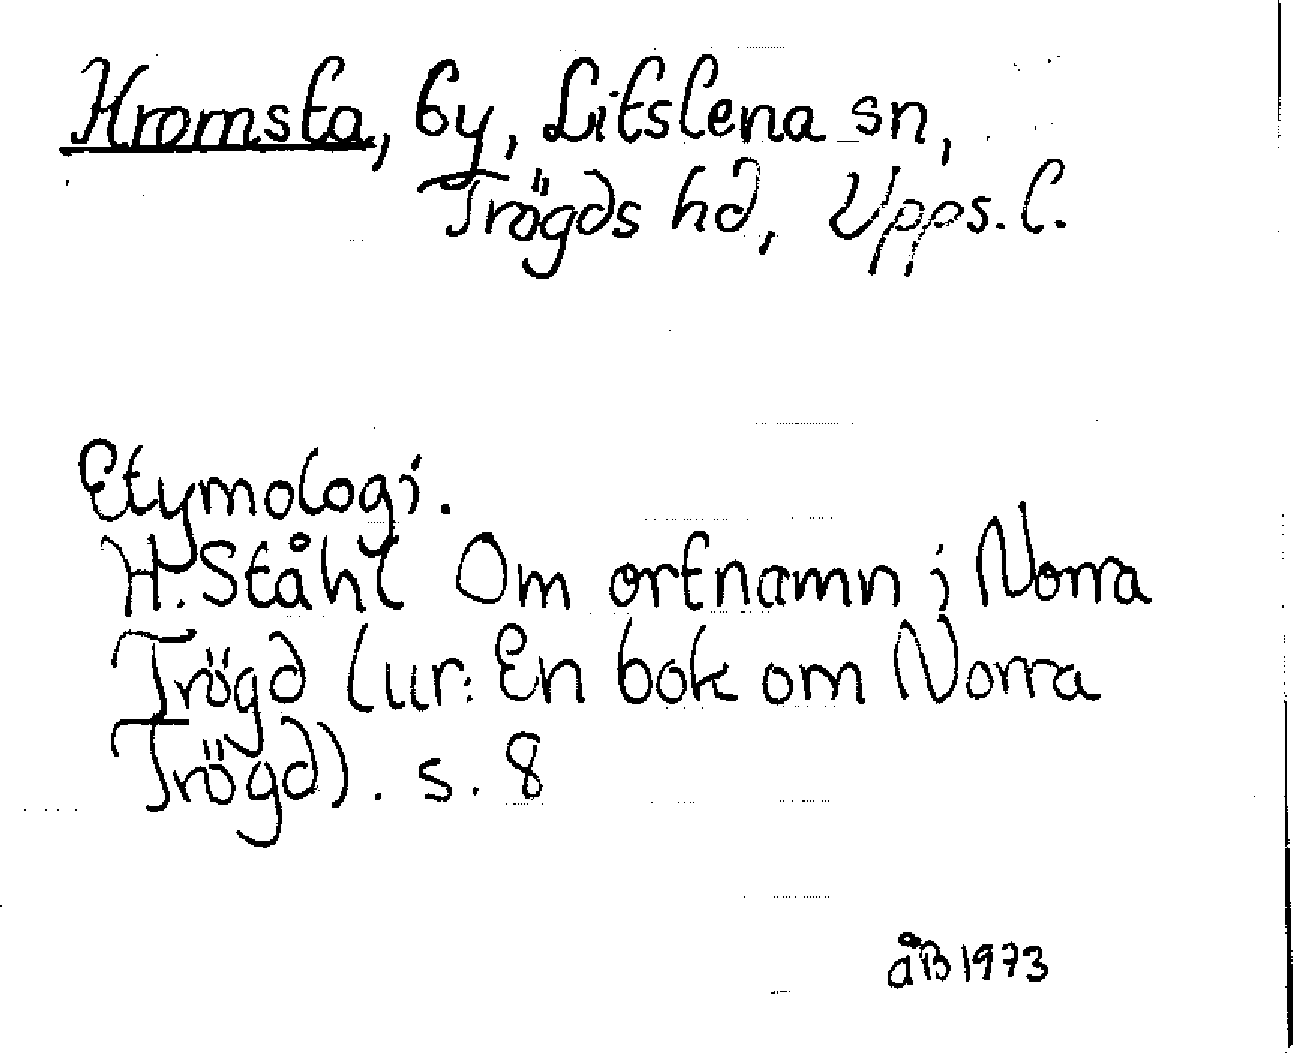 Kromsta, by, Litslena sn,
Trögds hd, Upps. l.
Etymologi.
H. Ståhl Om ortnamn i Norra
Trögd (ur: En bok om Norra
Trögd). s. 8
åB 1973